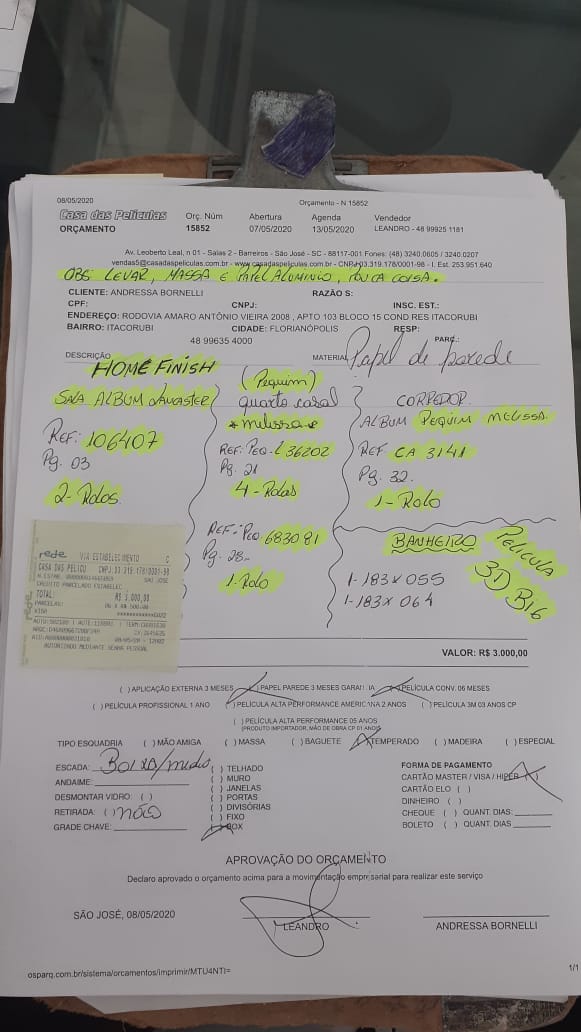 08/05/2020
Orçamento - N 15852
Casa das Películas
ORÇAMENTO
Orç. Núm
15852
Abertura
07/05/2020
Agenda
13/05/2020
Vendedor
LEANDRO - 48 99925 1181
Av. Leoberto Leal, n 01 - Salas 2 - Barreiros - São José - SC - 88117-001 Fones: (48) 3240.0605 / 3240.0207
vendas5@casadaspeliculas.com.br - www.casadaspeliculas.com.br - CNPJ 03.319.178/0001-98 - I. Est. 253.951.640
OBS: LEVAR, MASSA E PAPEL ALUMINIO, POUCA COISA.
CLIENTE: ANDRESSA BORNELLI
RAZÃO S:
CPF:
CNPJ:
INSC. EST.:
ENDEREÇO: RODOVIA AMARO ANTÔNIO VIEIRA 2008 , APTO 103 BLOCO 15 COND RES ITACORUBI
BAIRRO: ITACORUBI
CIDADE: FLORIANÓPOLIS
RESP:
48 99635 4000
PARC.:
DESCRIÇÃO
HOME FINISH
MATERIAL
Papel de parede
SALA ALBUM LANCASTER
REF: 106407
Pg. 03
2-Rolos
(Pequim)
quarto casal
* melissa *
REF: PEQ-L 36202
Pg. 21
4-Rolos
REF: PEQ 683081
Pg. 28-
1-Rolo
CORREDOR
ALBUM PEQUIM MELISSA
REF CA 3141
Pg. 32.
1-Rolo
BANHEIRO
1-183 x 055
1-183 x 064
PELÍCULA
3D B16
rede VIA ESTABELECIMENTO
CASA DAS PELICU CNPJ:03.319.178/0001-98
SAO JOSE
CREDITO PARCELADO ESTABELEC
TOTAL: R$ 3.000,00
PARCELAS: 06 X R$ 500,00
VISA
AUTORIZADO MEDIANTE SENHA PESSOAL
VALOR: R$ 3.000,00
( ) APLICAÇÃO EXTERNA 3 MESES ( ) PAPEL PAREDE 3 MESES GARANTIA ( ) PELÍCULA CONV. 06 MESES
( ) PELÍCULA PROFISSIONAL 1 ANO ( ) PELÍCULA ALTA PERFORMANCE AMERICANA 2 ANOS ( ) PELÍCULA 3M 03 ANOS CP
( ) PELÍCULA ALTA PERFORMANCE 05 ANOS
(PRODUTO IMPORTADOR, MÃO DE OBRA CP 01 ANO)
TIPO ESQUADRIA ( ) MÃO AMIGA ( ) MASSA ( ) BAGUETE (X) TEMPERADO ( ) MADEIRA ( ) ESPECIAL
ESCADA: BAIXA/media
ANDAIME:
DESMONTAR VIDRO: ( )
RETIRADA: ( ) NÃO
GRADE CHAVE:
( ) TELHADO
( ) MURO
( ) JANELAS
( ) PORTAS
( ) DIVISÓRIAS
( ) FIXO
(X) BOX
FORMA DE PAGAMENTO
CARTÃO MASTER / VISA / HIPER (X)
CARTÃO ELO ( )
DINHEIRO ( )
CHEQUE ( ) QUANT. DIAS:
BOLETO ( ) QUANT. DIAS
APROVAÇÃO DO ORÇAMENTO
Declaro aprovado o orçamento acima para a movimentação empresarial para realizar este serviço
SÃO JOSÉ, 08/05/2020
LEANDRO
ANDRESSA BORNELLI
osparq.com.br/sistema/orcamentos/imprimir/MTU4NTI=
1/1